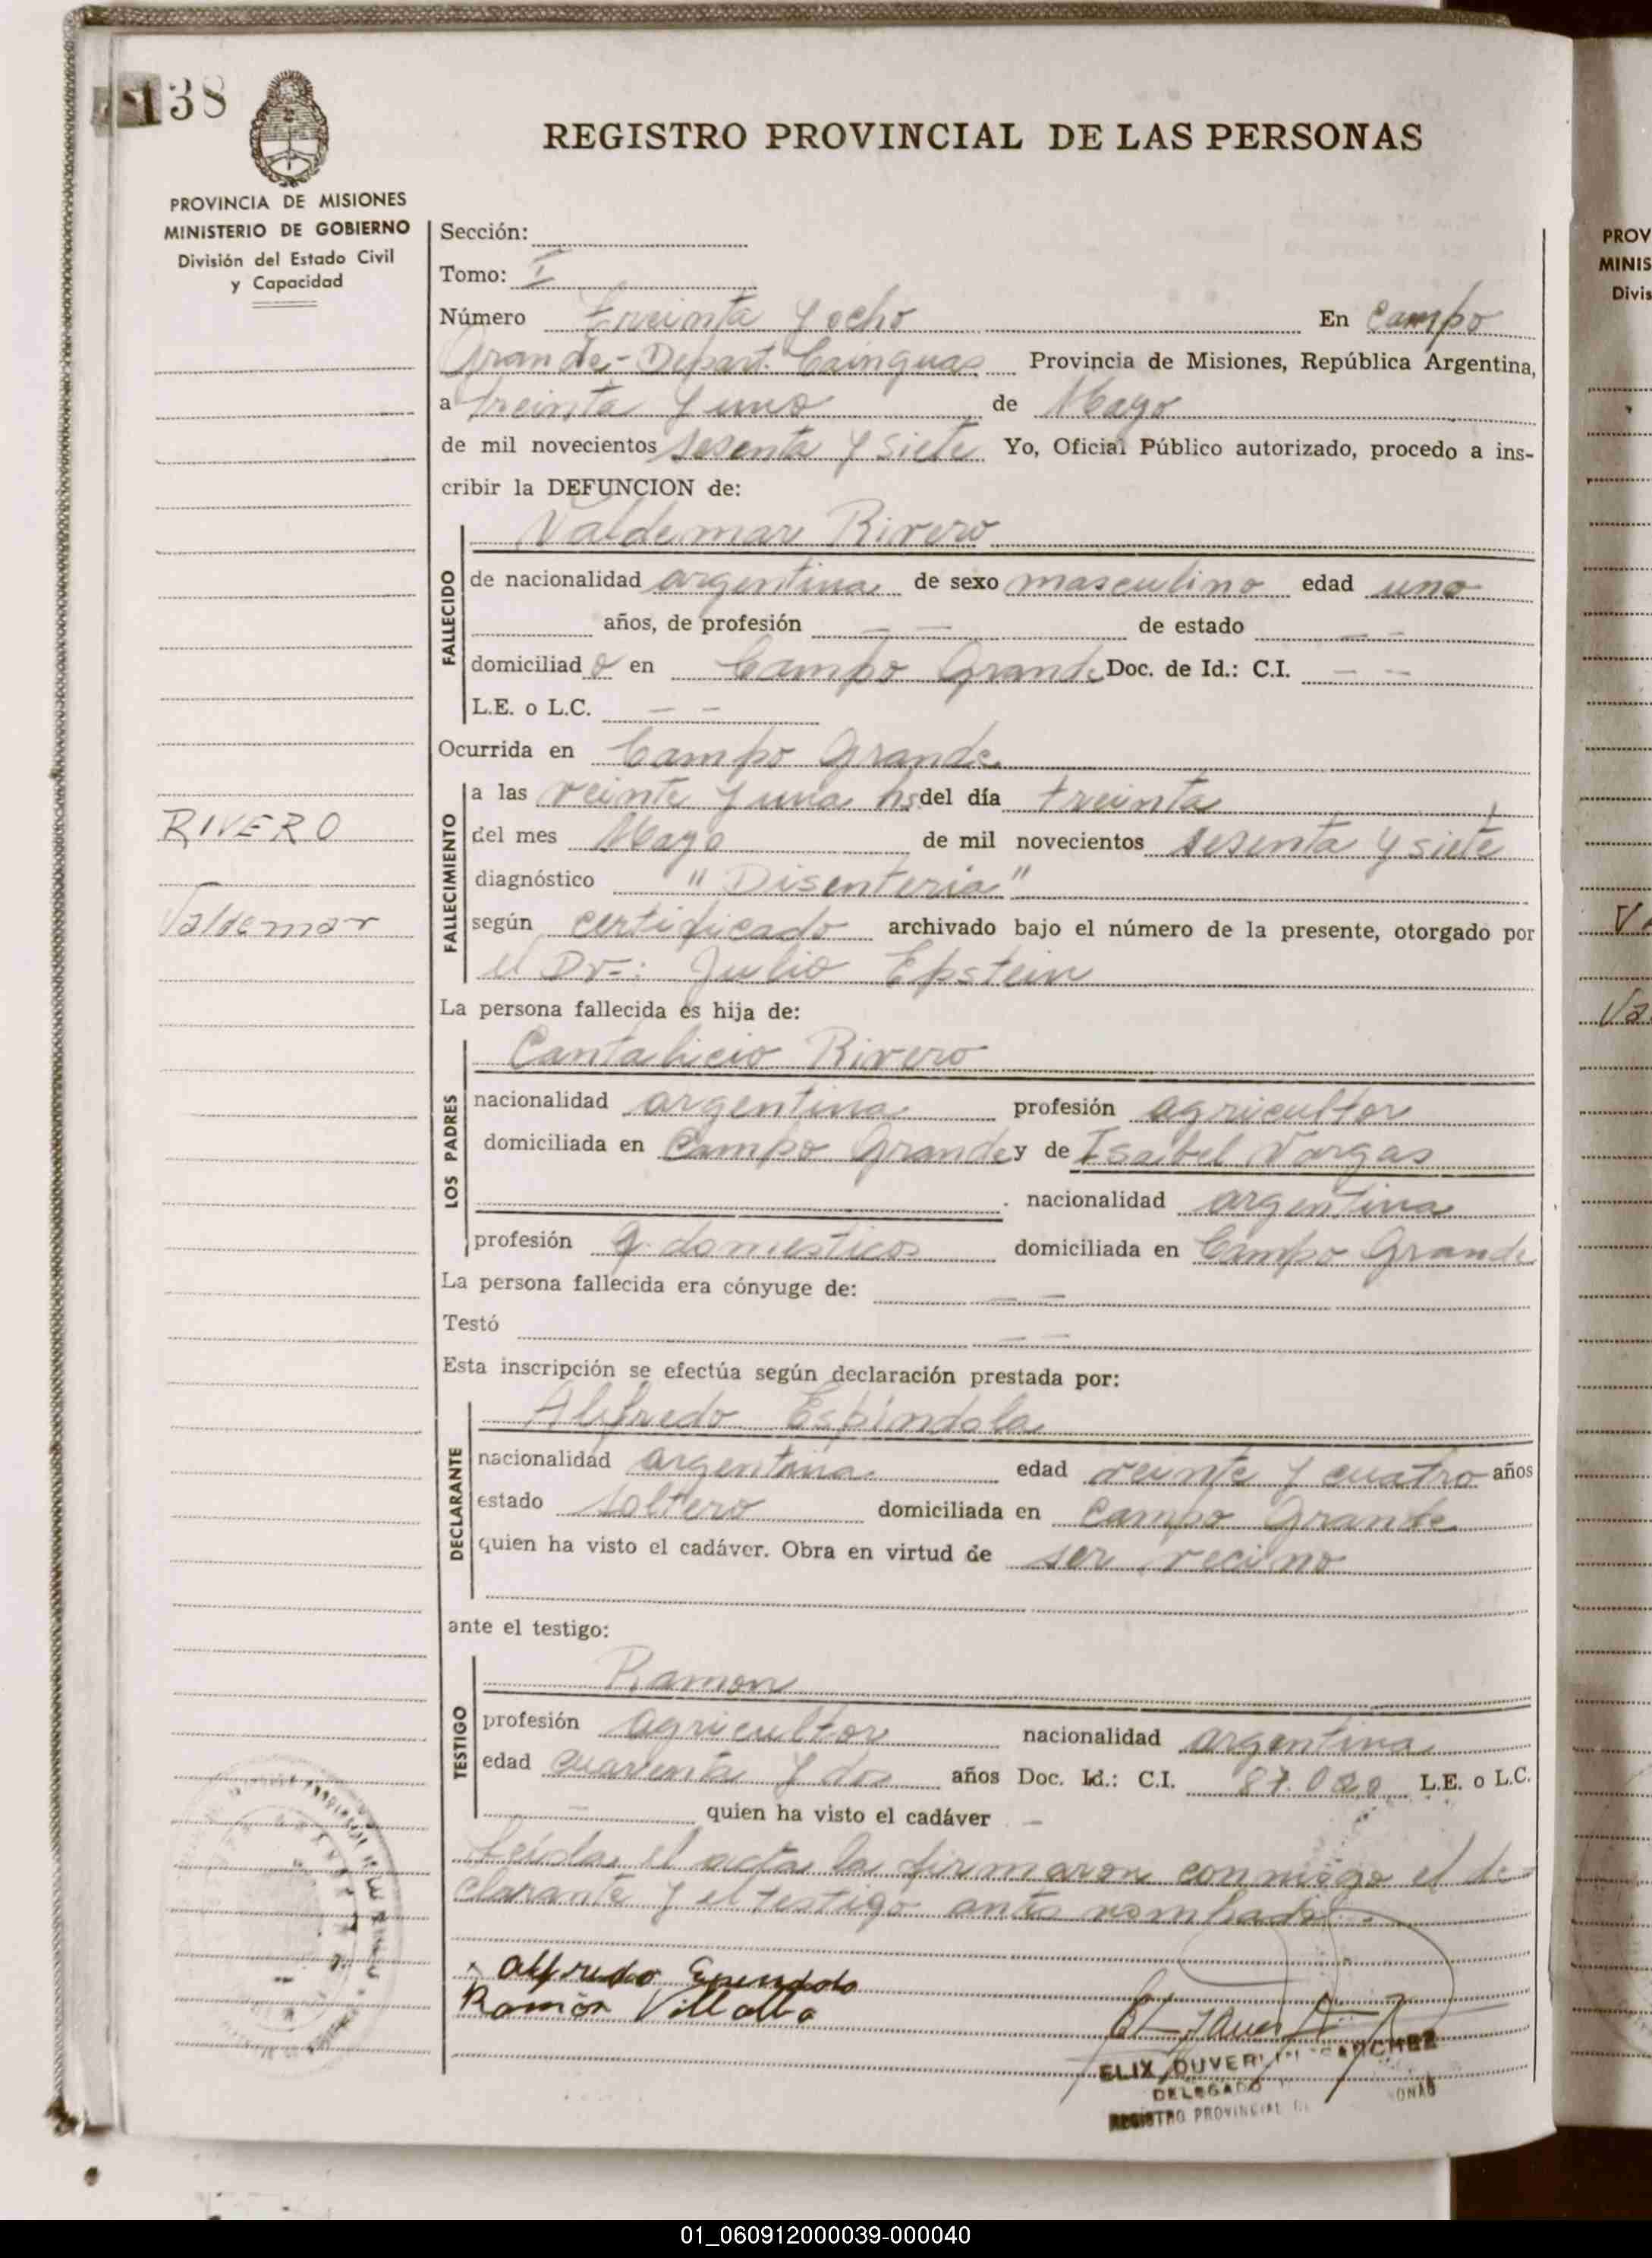 138
REGISTRO PROVINCIAL DE LAS PERSONAS
PROVINCIA DE MISIONES
MINISTERIO DE GOBIERNO
División del Estado Civil
y Capacidad
Sección:
Tomo: I
Número Treinta y ocho En Campo
Grande - Depart. Cainguas Provincia de Misiones, República Argentina,
a treinta y uno de Mayo
de mil novecientos sesenta y siete Yo, Oficial Público autorizado, procedo a ins-
cribir la DEFUNCION de:
Valdemar Rivero
FALLECIDO
de nacionalidad argentina de sexo masculino edad uno
años, de profesión — — de estado — —
domiciliado en Campo Grande Doc. de Id.: C.I. — —
L.E. o L.C. — —
Ocurrida en Campo Grande
FALLECIMIENTO
a las veinte y una hs del día treinta
del mes Mayo de mil novecientos sesenta y siete
RIVERO
diagnóstico "Disenteria"
según certificado archivado bajo el número de la presente, otorgado por
Valdemar
el Dr.: Julio Epstein
La persona fallecida es hija de:
LOS PADRES
Cantalicio Rivero
nacionalidad argentina profesión agricultor
domiciliada en Campo Grande y de Isabel Vargas
nacionalidad argentina
profesión q. domesticos domiciliada en Campo Grande
La persona fallecida era cónyuge de: — —
Testó — —
Esta inscripción se efectúa según declaración prestada por:
DECLARANTE
Alfredo Espindola
nacionalidad argentina edad veinte y cuatro años
estado soltero domiciliada en Campo Grande
quien ha visto el cadáver. Obra en virtud de ser vecino
ante el testigo:
TESTIGO
Ramon
profesión agricultor nacionalidad argentina
edad cuarenta y dos años Doc. Id.: C.I. L.E. o L.C.
quien ha visto el cadáver —
Leída el acta la firmaron conmigo el de-
clarante y el testigo antes nombado.
Alfredo Espindola
Ramón Villalba
ELIX DUVER SANCHEZ
DELEGADO
REGISTRO PROVINCIAL
PROV
MINIS
Divis
01_060912000039-000040